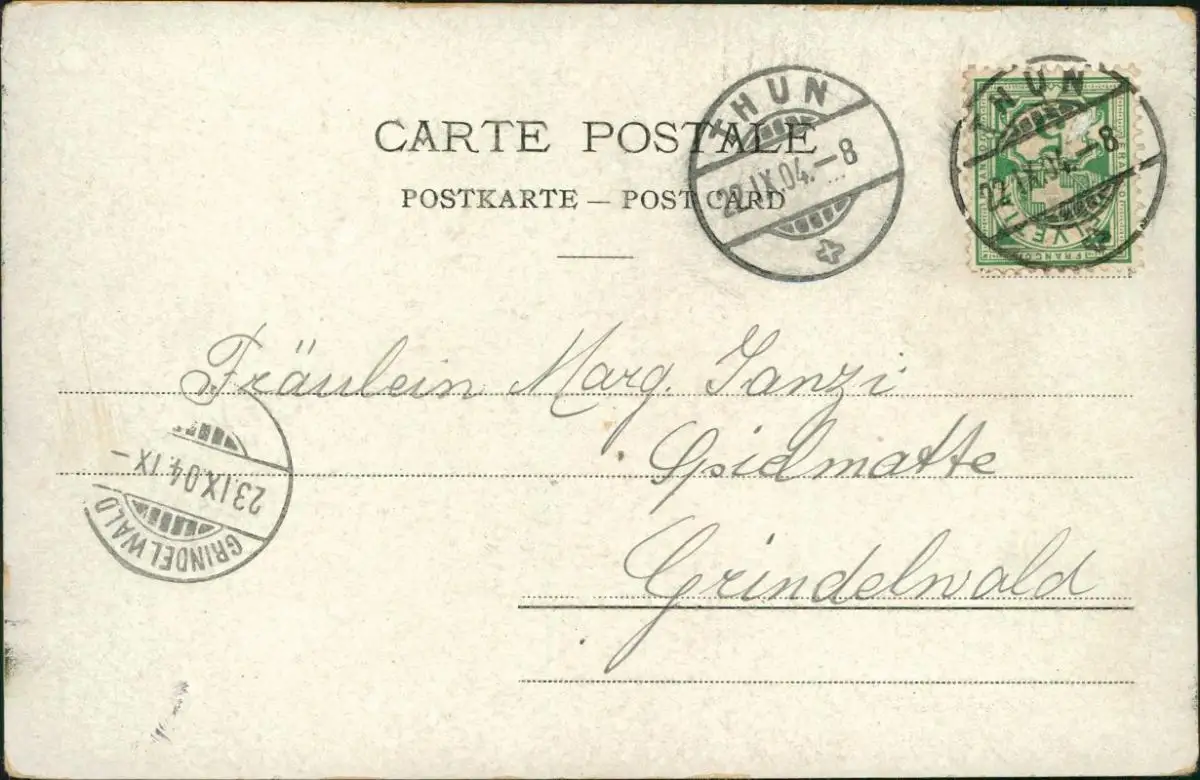 CARTE POSTALE
POSTKARTE – POST CARD
THUN
22.IX.04.–8
THUN
22.IX.04.–8
FRANCO
Fräulein Marg.
Gsidmatte
Grindelwald
23.IX.04.IX–
GRINDELWALD